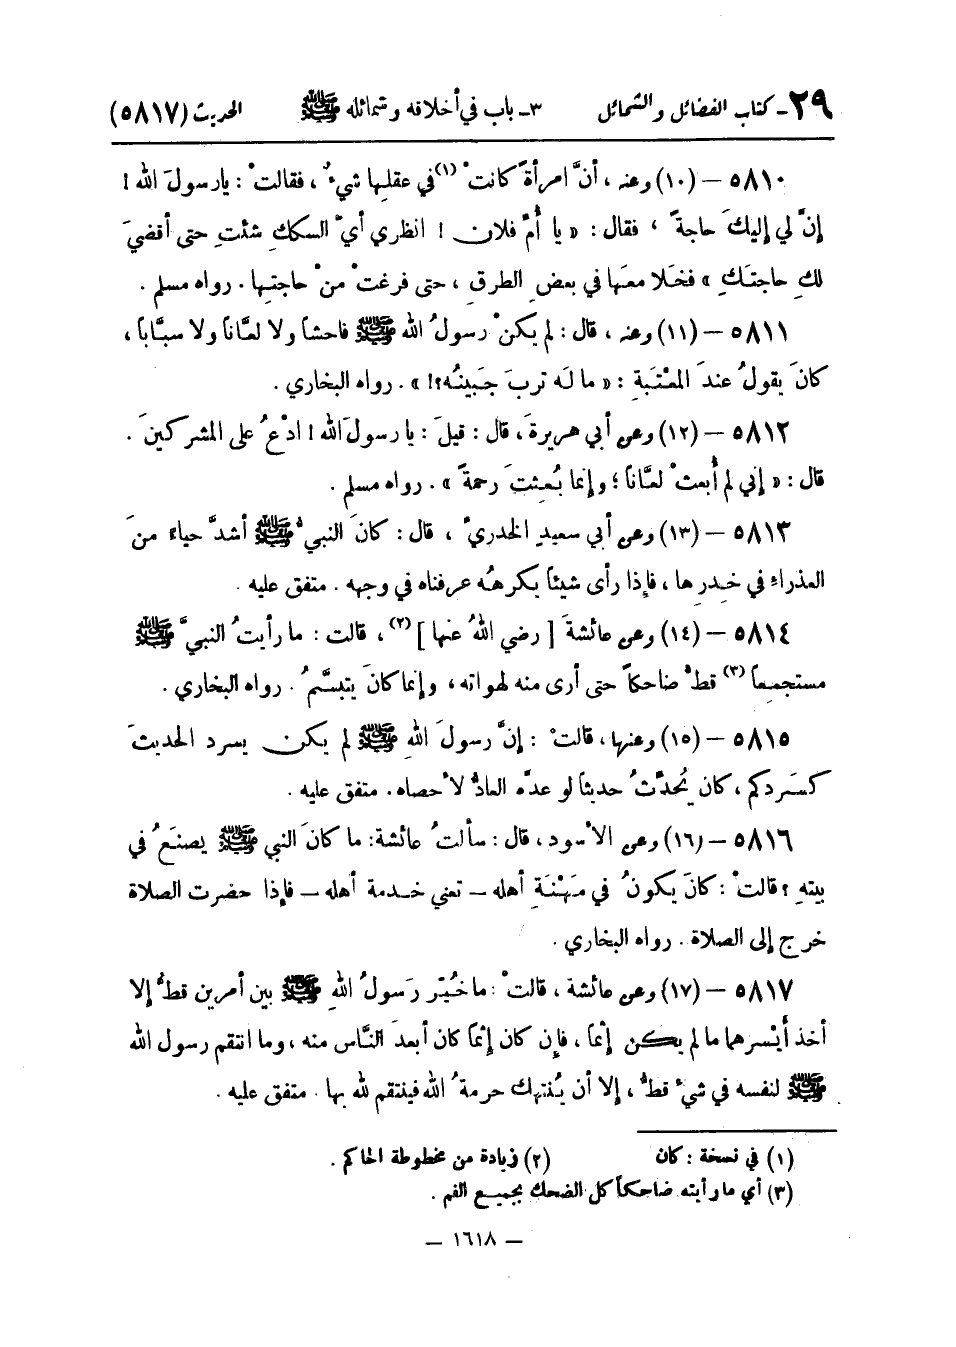 ٢٩ـ كتاب الفضائل والشمائل ٣ـ باب في أخلاقه وشمائله ﷺ الحديث (٥٨١٧)
٥٨١٠ – (١٠) وعنه ، أنَّ امرأةً كانتْ (١) في عقلِها شيءٌ ، فقالتْ : يا رسولَ الله !
إنَّ لي إليكَ حاجةً ، فقال : « يا أُمَّ فلان ! انظري أيَّ السككِ شئتِ حتى أقضيَ
لكِ حاجتَكِ » فخَلا معَها في بعضِ الطرقِ ، حتى فرغتْ منْ حاجتِها . رواه مسلم .
٥٨١١ – (١١) وعنه ، قال : لم يكنْ رسولُ الله ﷺ فاحشاً ولا لعَّاناً ولا سبَّاباً ،
كانَ يقولُ عندَ المعْتَبةِ : « ما لَه تربَ جَبينُه؟! » . رواه البخاري .
٥٨١٢ – (١٢) وعن أبي هريرةَ ، قال : قيلَ : يا رسولَ الله ! ادْعُ على المشركينَ .
قال : « إني لم أُبعثْ لعَّاناً ؛ وإنما بُعثتُ رحمةً » . رواه مسلم .
٥٨١٣ – (١٣) وعن أبي سعيدٍ الخدريِّ ، قال : كانَ النبيُّ ﷺ أشدَّ حياءً منَ
العذراءِ في خدرِها ، فإذا رأى شيئاً يكرهُه عرفناه في وجهه . متفق عليه .
٥٨١٤ – (١٤) وعن عائشةَ [ رضي اللهُ عنها ] (٢) ، قالت : ما رأيتُ النبيَّ ﷺ
مستجمِعاً (٣) قطُّ ضاحكاً حتى أرى منه لهواته ، وإنما كانَ يتبسَّمُ . رواه البخاري .
٥٨١٥ – (١٥) وعنها ، قالتْ : إنَّ رسولَ اللهِ ﷺ لم يكن يسرد الحديثَ
كسَردكم ، كان يُحدِّثُ حديثاً لو عدَّه العادُّ لأحصاه . متفق عليه .
٥٨١٦ – (١٦) وعن الأسود ، قال : سألتُ عائشة: ما كانَ النبي ﷺ يصنَعُ في
بيتهِ ؟ قالتْ : كانَ يكونُ في مَهْنَةِ أهله – تعني خدمة أهله – فإذا حضرت الصلاة
خرج إلى الصلاة . رواه البخاري .
٥٨١٧ – (١٧) وعن عائشة ، قالتْ : ما خُيِّر رَسولُ اللهِ ﷺ بين أمرين قطُّ إلا
أخذ أيْسرهما ما لم يكن إثماً ، فإن كان إثماً كان أبعدَ النَّاس منه ، وما انتقم رسول الله
ﷺ لنفسه في شيءٍ قطُّ ، إلا أن يُنتهك حرمةُ الله فينتقم لله بها . متفق عليه .
(١) في نسخة : كان (٢) زيادة من مخطوطة الحاكم .
(٣) أي ما رأيته ضاحكاً كل الضحك بجميع الفم .
– ١٦١٨ –